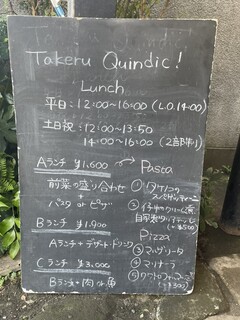 Takeru Quindic!
Lunch
平日：12:00〜16:00 (L.O.14:00)
土日祝：12:00〜13:50
14:00〜16:00 (2部制)
Aランチ ¥1,600 → Pasta
前菜の盛り合わせ
+
パスタ or ピザ
Bランチ ¥1,900
Aランチ+デザート・ドリンク
Cランチ ¥3,000
Bランチ+肉 or 魚
①
スパゲッティーニ
②
自家製
(+¥500)
Pizza
③マルゲリータ
④マリナーラ
⑤クワトロフォルマッジ
(+¥300)